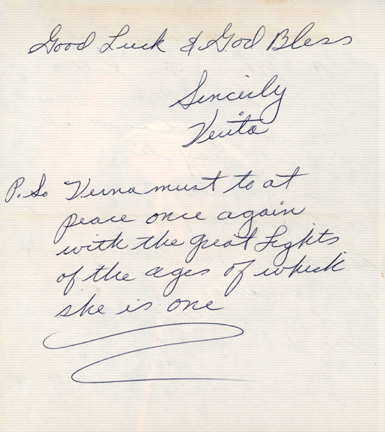 Good Luck & God Bless
Sincerly
Verita
P.S. Verna must to at
peace once again
with the great Lights
of the ages of which
she is one